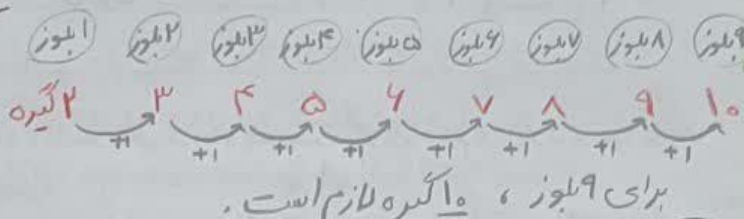 ۱ بلوز ۲ بلوز ۳ بلوز ۴ بلوز ۵ بلوز ۶ بلوز ۷ بلوز ۸ بلوز ۹ بلوز
۲ گیره ۳ ۴ ۵ ۶ ۷ ۸ ۹ ۱۰
+۱ +۱ +۱ +۱ +۱ +۱ +۱ +۱
برای ۹ بلوز ، ۱۰ گیره لازم است .